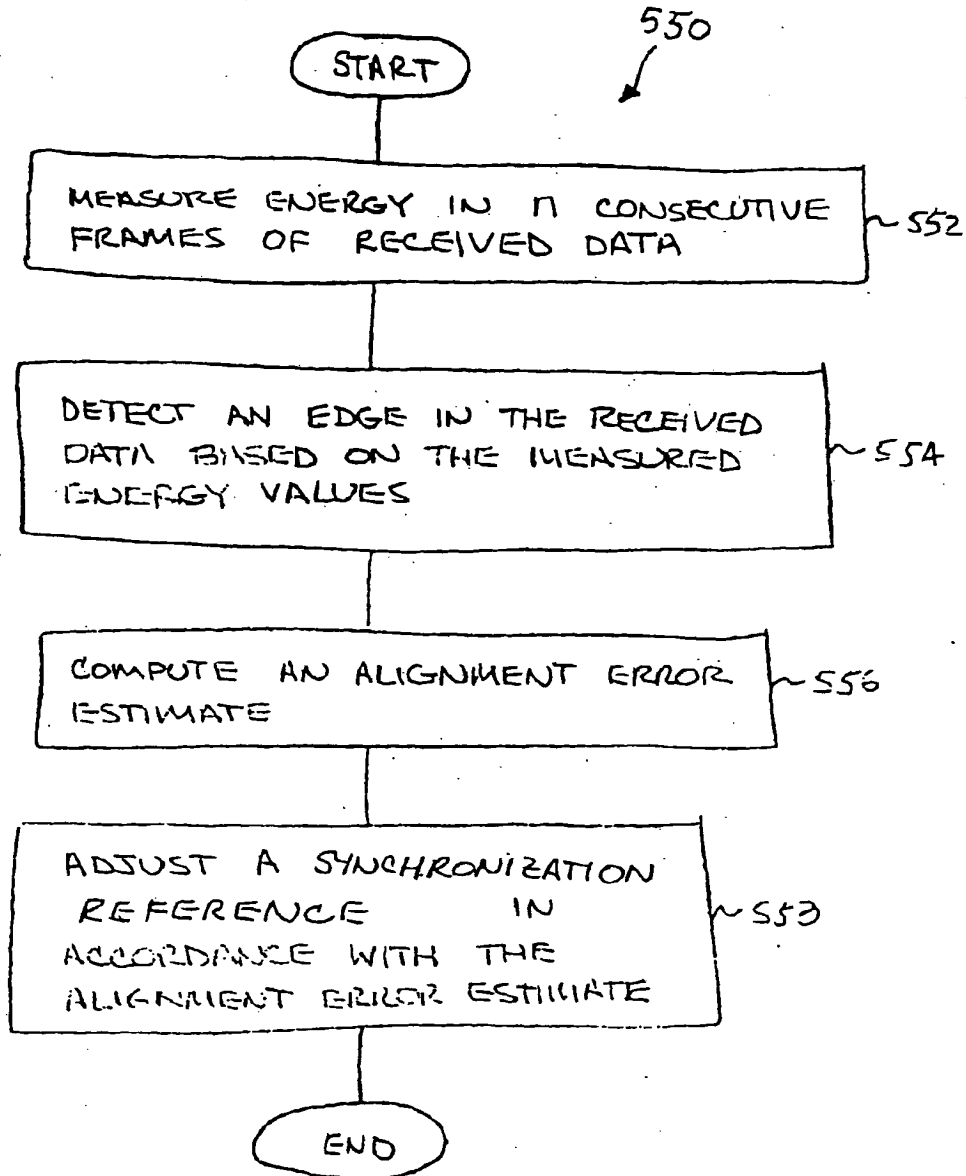 550
START
MEASURE ENERGY IN n CONSECUTIVE
FRAMES OF RECEIVED DATA
552
DETECT AN EDGE IN THE RECEIVED
DATA BASED ON THE MEASURED
ENERGY VALUES
554
COMPUTE AN ALIGNMENT ERROR
ESTIMATE
556
ADJUST A SYNCHRONIZATION
REFERENCE IN
ACCORDANCE WITH THE
ALIGNMENT ERROR ESTIMATE
553
END